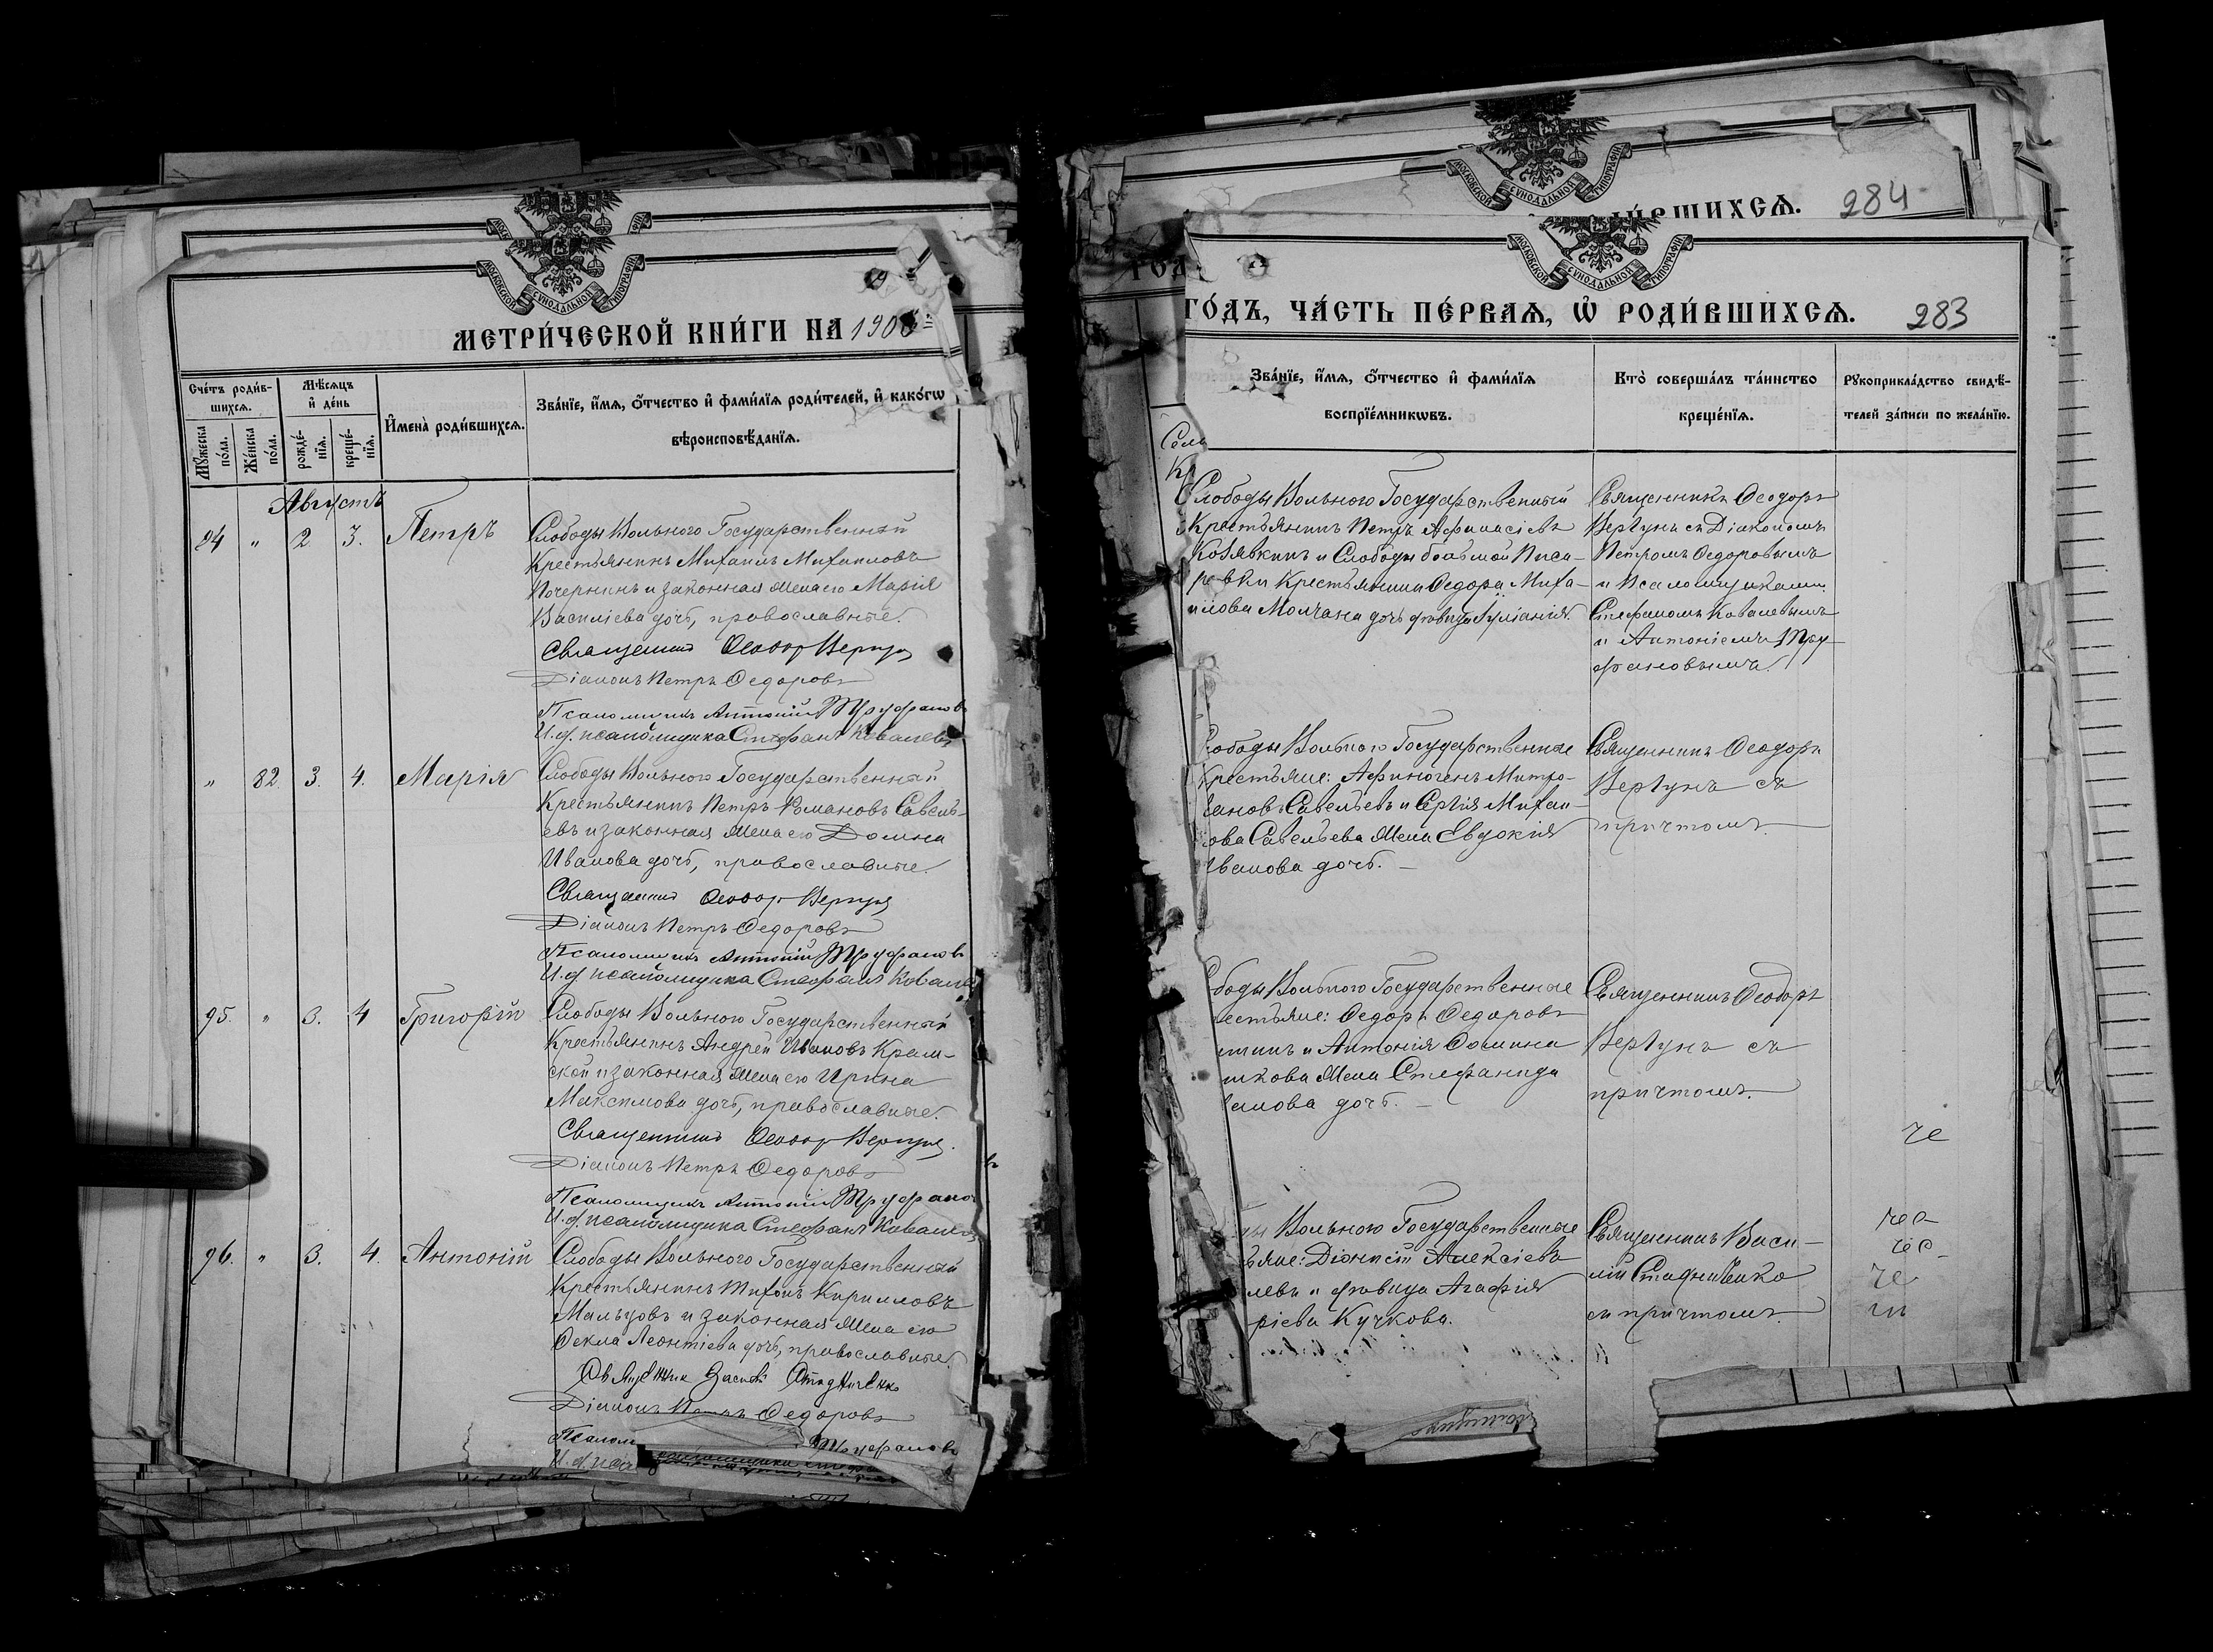 МЕТРИ́ЧЕСКОЙ КНИ́ГИ НА 190
Сче́тъ роди́в-
шихсѧ.
Мꙋ́жеска
по́ла.
Же́нска
по́ла.
Мѣ́сѧцъ
и҆ де́нь
рожде́-
нїѧ.
креще́-
нїѧ.
И҆мена̀ роди́вшихсѧ.
Зва́нїе, и҆́мѧ, ѻ҆́тчество и҆ фами́лїѧ роди́телей, и҆ како́гѡ
вѣроисповѣ́данїѧ.
Августъ
94 " 2 3. Петръ
Слободы Вольного Государственный
Крестьянинъ Михаилъ Михаиловъ
и законная жена его Марія
Василіева дочь, православные.
Священникъ Ѳеодор Вергун
Діаконъ Петръ Ѳедоровъ
Псаломщикъ Антоній Труфановъ
И.д. псаломщика Стефанъ Ковалевъ
" 82 3. 4. Марія
Слободы Вольного Государственный
Крестьянинъ Петръ Романовъ Савель-
евъ и законная жена его Домна
Иванова дочь, православные.
Священникъ Ѳеодор Вергун
Діаконъ Петръ Ѳедоровъ
Псаломщикъ Антоній Труфановъ
И.д. псаломщика Стефанъ Ковалев
95. " 3. 4 Григорій
Слободы Вольного Государственный
Крестьянинъ Андрей Ивановъ Крам-
ской и законная жена его Ирина
Максимова дочь, православные.
Священникъ Ѳеодор Вергун.
Діаконъ Петръ Ѳедоровъ
Псаломщикъ Антоній Труфанов
И.д. псаломщика Стефанъ Ковалев
96. " 3. 4. Антоній
Слободы Вольного Государственный
Крестьянинъ Тихонъ Кирилловъ
Мальцовъ и законная жена его
Ѳекла Леонтіева дочь, православные.
Священник Василій Стадниченко
Діаконъ Петръ Ѳедоровъ
Псалом Труфановъ
И.д. пса
РОДИ́ВШИХСѦ. 284
ГО́ДЪ, ЧА́СТЬ ПЕ́РВАѦ, Ѡ҆ РОДИ́ВШИХСѦ. 283
Зва́нїе, и҆́мѧ, ѻ҆́тчество и҆ фами́лїѧ
воспрїе́мникѡвъ.
Кто̀ соверша́лъ та́инство
креще́нїѧ.
Рꙋкоприкла́дство свидѣ́-
телей за́писи по жела́нїю.
Слободы Вольного Государственный
Крестьянинъ Петръ Афанасіевъ
Козявкинъ и Слободы большой Писа-
ревки Крестьянина Ѳедора Миха-
илова Молчана дочь девица Іуліанія.
Священникъ Ѳеодоръ
Вергунъ съ Діакономъ
Петромъ Ѳедоровымъ
и Псаломщиками
Стефаномъ Ковалевымъ
и Антоніемъ Тру-
фановымъ.
лободы Вольного Государственные
Крестьяне: Афиногенъ Митро-
фановъ Савельевъ и Сергія Михаи-
лова Савельева жена Евдокія
Иванова дочь.
Священникъ Ѳеодоръ
Вергунъ съ
причтомъ.
ободы Вольного Государственные
рестьяне: Ѳедоръ Ѳедоровъ
и Антонія Фомина
шкова жена Стефанида
анова дочь.
Священникъ Ѳеодоръ
Вергунъ съ
причтомъ.
ды Вольного Государственные
ьяне: Діонисій Алексіевъ
левъ и девица Агафія
ріева Кучкова.
Священникъ Васи-
лій Стадниченко
съ причтомъ.